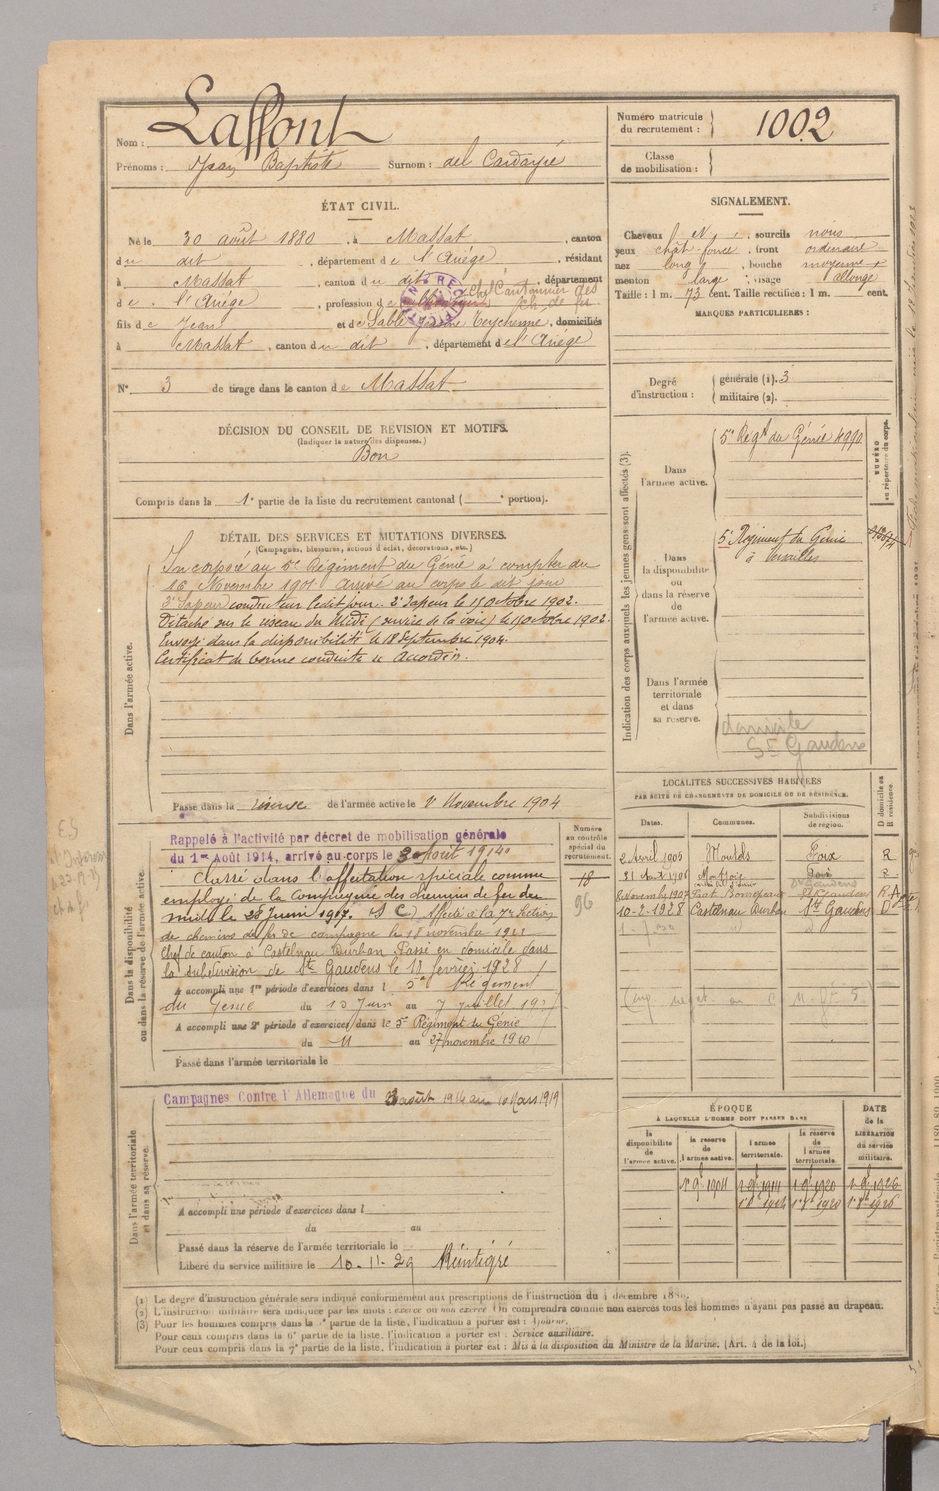 Nom : Laffont
Prénoms : Jean Baptiste Surnom : del Cardayré
Numéro matricule du recrutement : 1002
Classe de mobilisation :
ÉTAT CIVIL.
Né le 30 août 1880, à Massat, canton
du dit, département de l'Ariège, résidant
à Massat, canton du dit, département
de l'Ariège, profession de Chef Cantonnier des ch. de fer
fils de Jean et de Sablé Jeanne Teychenné, domiciliés
à Massat, canton du dit, département de l'Ariège
N° 3 de tirage dans le canton de Massat
SIGNALEMENT.
Cheveux N, sourcils noirs
yeux chât-foncé, front ordinaire
nez long, bouche moyenne
menton large, visage allongé
Taille : 1 m. 73 cent. Taille rectifiée : 1 m. cent.
MARQUES PARTICULIÈRES :
Degré d'instruction : générale (1). 3
militaire (2).
DÉCISION DU CONSEIL DE RÉVISION ET MOTIFS.
(Indiquer la nature des dispenses.)
Bon
Compris dans la 1e partie de la liste du recrutement cantonal ( e portion).
DÉTAIL DES SERVICES ET MUTATIONS DIVERSES.
(Campagnes, blessures, actions d'éclat, décorations, etc.)
Dans l'armée active.
Incorporé au 5e Régiment du Génie à compter du
16 Novembre 1901 arrivé au corps le dit jour
2e Sapeur conducteur ledit jour. 2e Sapeur le 15 Octobre 1902.
Détaché sur le réseau du Midi (service de la voie) le 15 Octobre 1902.
Envoyé dans la disponibilité le 18 Septembre 1904.
Certificat de bonne conduite accordé.
Passé dans la réserve de l'armée active le 1r Novembre 1904
Dans la disponibilité ou dans la réserve de l'armée active.
Rappelé à l'activité par décret de mobilisation générale
du 1er Août 1914, arrivé au corps le 3 août 1914
Classé dans l'affectation spéciale comme
employé de la Compagnie des chemins de fer du
midi le 28 Juin 1917. (S C) Affecté à la 7e Section
de chemins de fer de campagne le 18 novembre
Chef de canton à Castelnau Durban Passé en domicile dans
la subdivision de St Gaudens le 13 février 1928
A accompli une 1re période d'exercices dans l 5e Régiment
du Génie du Juin au 7 juillet
A accompli une 2e période d'exercices dans le 5e Régiment du Génie
du 11 au 27 novembre 1910
Passé dans l'armée territoriale le
Numéro au contrôle spécial du recrutement.
18
96
Dans l'armée territoriale et dans sa réserve.
Campagnes Contre l'Allemagne du 3 août 1914 au 10 Mars 1919
A accompli une période d'exercices dans l
du au
Passé dans la réserve de l'armée territoriale le
Libéré du service militaire le 10-11-29 Réintégré
Indication des corps auxquels les jeunes gens sont affectés (3).
Dans l'armée active.
5e Régt du Génie 4990
NUMÉRO au répertoire du corps.
Dans la disponibilité ou dans la réserve de l'armée active.
5e Régiment du Génie
à Versailles
Dans l'armée territoriale et dans sa réserve.
domicile
St Gaudens
LOCALITÉS SUCCESSIVES HABITÉES
PAR SUITE DE CHANGEMENTS DE DOMICILE OU DE RÉSIDENCE.
Dates. Communes. Subdivisions de région. D domicile ou R résidence.
2 Avril 1905 Moulels Foix R
21 Août 1906 Montjoie Foix R
8 Novembre 1907 St Gaudens R
10-2-1928 Castelnau Durban St Gaudens D
ÉPOQUE
À LAQUELLE L'HOMME DOIT PASSER DANS
la disponibilité de l'armée active. la réserve de l'armée active. l'armée territoriale. la réserve de l'armée territoriale.
DATE de la LIBÉRATION du service militaire.
1r 9bre 1904 1r 9bre 1914 1r 9bre 1920 1r 9bre 1926
1er 8bre 1914 1er 8bre 1920 1er 8bre 1926
(1) Le degré d'instruction générale sera indiqué conformément aux prescriptions de l'instruction du 4 décembre 1889.
(2) L'instruction militaire sera indiquée par les mots : exercé ou non exercé. On comprendra comme non exercés tous les hommes n'ayant pas passé au drapeau.
(3) Pour les hommes compris dans la 5e partie de la liste, l'indication à porter est : Ajourné.
Pour ceux compris dans la 6e partie de la liste, l'indication à porter est : Service auxiliaire.
Pour ceux compris dans la 7e partie de la liste, l'indication à porter est : Mis à la disposition du Ministre de la Marine. (Art. 4 de la loi.)